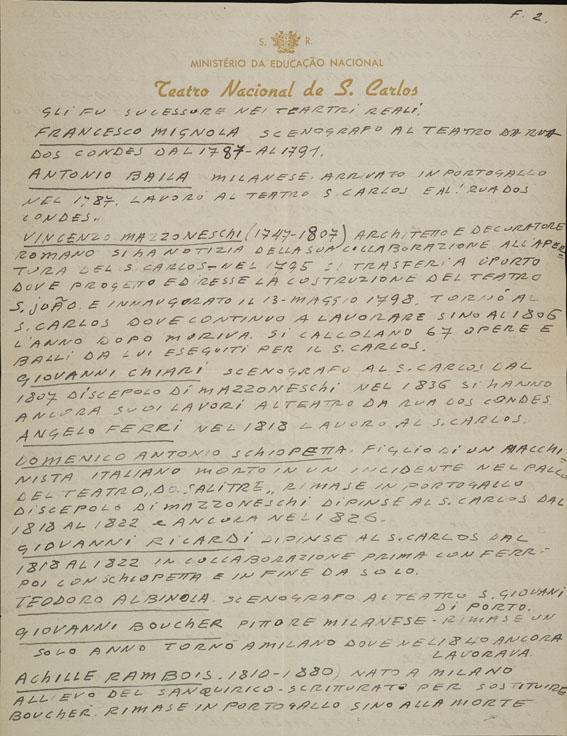 F. 2.
S. R.
MINISTÉRIO DA EDUCAÇÃO NACIONAL
Teatro Nacional de S. Carlos
GLI FU SUCESSORE NEI TEARTRI REALI.
FRANCESCO MIGNOLA SCENOGRAFO AL TEATRO DA RUA
DOS CONDES DAL 1787-AL 1791.
ANTONIO BAILA MILANESE. ARRIVATO IN PORTOGALLO
NEL 1787. LAVORÒ AL TEATRO S. CARLOS E AL! RUA DOS
CONDES..
VINCENZO MAZZONESCHI (1747-1807) ARCHITETTO E DECORATORE
ROMANO SI HA NOTIZIA DELLA SUA COLLABORAZIONE ALL'APER
TURA DEL S. CARLOS-NEL 1795 SI TRASFERI A ÚPORTO
DOVE PROGETÒ E DIRESSE LA COSTRUZIONE DEL TEATRO
S. JOÃO. E INNAUGURATO IL 13-MAGGIO 1798. TORNÒ AL
S. CARLOS DOVE CONTINUO A LAVORARE SINO AL 1806
L'ANNO DOPO MORIVA. SI CALCOLANO 67 OPERE E
BALLI DA LUI ESEGUITI PER IL S. CARLOS.
GIOVANNI CHIARI SCENOGRAFO AL S. CARLOS DAL
1807 DISCEPOLO DI MAZZONESCHI NEL 1836 SI HANNO
ANCORA SUOI LAVORI AL TEATRO DA RUA DOS CONDES
ANGELO FERRI NEL 1818 LAVORO AL S. CARLOS.
DOMENICO ANTONIO SCHIOPETTA. FIGLIO DI UN MACCHI-
NISTA ITALIANO MORTO IN UN INCIDENTE NEL PALCO
DEL TEATRO,, DO SALITRE,, RIMASE IN PORTOGALLO
DISCEPOLO DI MAZZONESCHI DIPINSE AL S. CARLOS DAL
1818 AL 1822 e ANCORA NEL 1826.
GIOVANNI RICARDI DIPINSE AL S. CARLOS DAL
1818 AL 1822 IN COLLABORAZIONE PRIMA CON FERRI-
POI CON SCHIOPETTA E IN FINE DA SOLO.
TEODORO ALBINOLA. SCENOGRAFO AL TEATRO S. GIOVANI
DI PORTO.
GIOVANNI BOUCHER PITTORE MILANESE - RIMASE UN
SOLO ANNO TORNÒ A MILANO DOVE NEL 1840 ANCORA
LAVORAVA.
ACHILLE RAMBOIS. 1810-1880) NATO A MILANO
ALLIEVO DEL SANQUIRICO-SCRITTURATO PER SOSTITUIRE
BOUCHER. RIMASE IN PORTOGALLO SINO ALLA MORTE